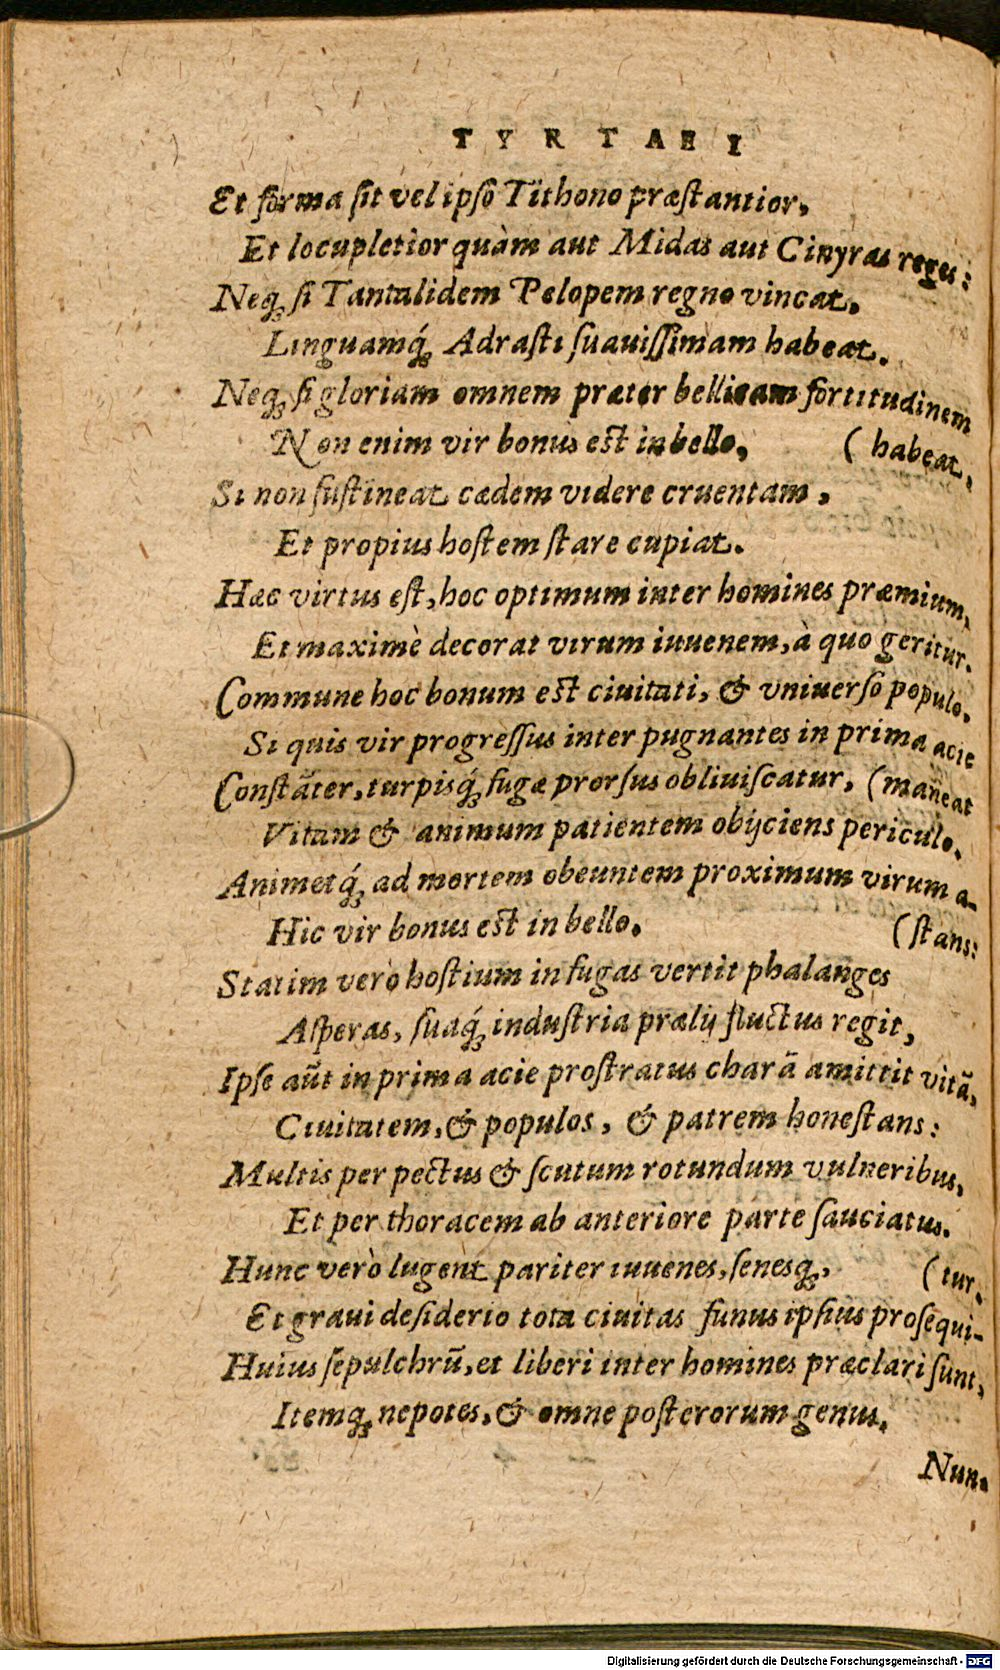 TYRTAEI
Et forma ſit vel ipſo Tithono præſtantior,
Et locupletior quàm aut Midas aut Cinyras reges:
Neq; ſi Tantalidem Pelopem regno vincat,
Linguamq́; Adraſti ſuauiſſimam habeat.
Neq; ſi gloriam omnem præter bellicam fortitudinem
Non enim vir bonus eſt in bello, (habeat,
Si non ſuſtineat cædem videre cruentam,
Et propius hoſtem ſtare cupiat.
Hæc virtus eſt, hoc optimum inter homines præmium,
Et maximè decorat virum iuuenem, à quo geritur.
Commune hoc bonum eſt ciuitati, & vniuerſo populo,
Si quis vir progreſſus inter pugnantes in prima acie
Conſtãter, turpisq́; fugæ prorſus obliuiſcatur, (maneat
Vitam & animum patientem obijciens periculo.
Animetq́; ad mortem obeuntem proximum virum a-
Hic vir bonus eſt in bello. (ſtans:
Statim verò hoſtium in fugas vertit phalanges
Aſperas, ſuaq́; induſtria prælij fluctus regit,
Ipſe aũt in prima acie proſtratus charã amittit vitã,
Ciuitatem, & populos, & patrem honeſtans:
Multis per pectus & ſcutum rotundum vulneribus,
Et per thoracem ab anteriore parte ſauciatus.
Hunc verò lugent pariter iuuenes, ſenesq;, (tur.
Et graui deſiderio tota ciuitas funus ipſius proſequi-
Huius ſepulchrũ, et liberi inter homines præclari ſunt,
Itemq; nepotes, & omne poſterorum genus.
Nun-
Digitalisierung gefördert durch die Deutsche Forschungsgemeinschaft - DFG